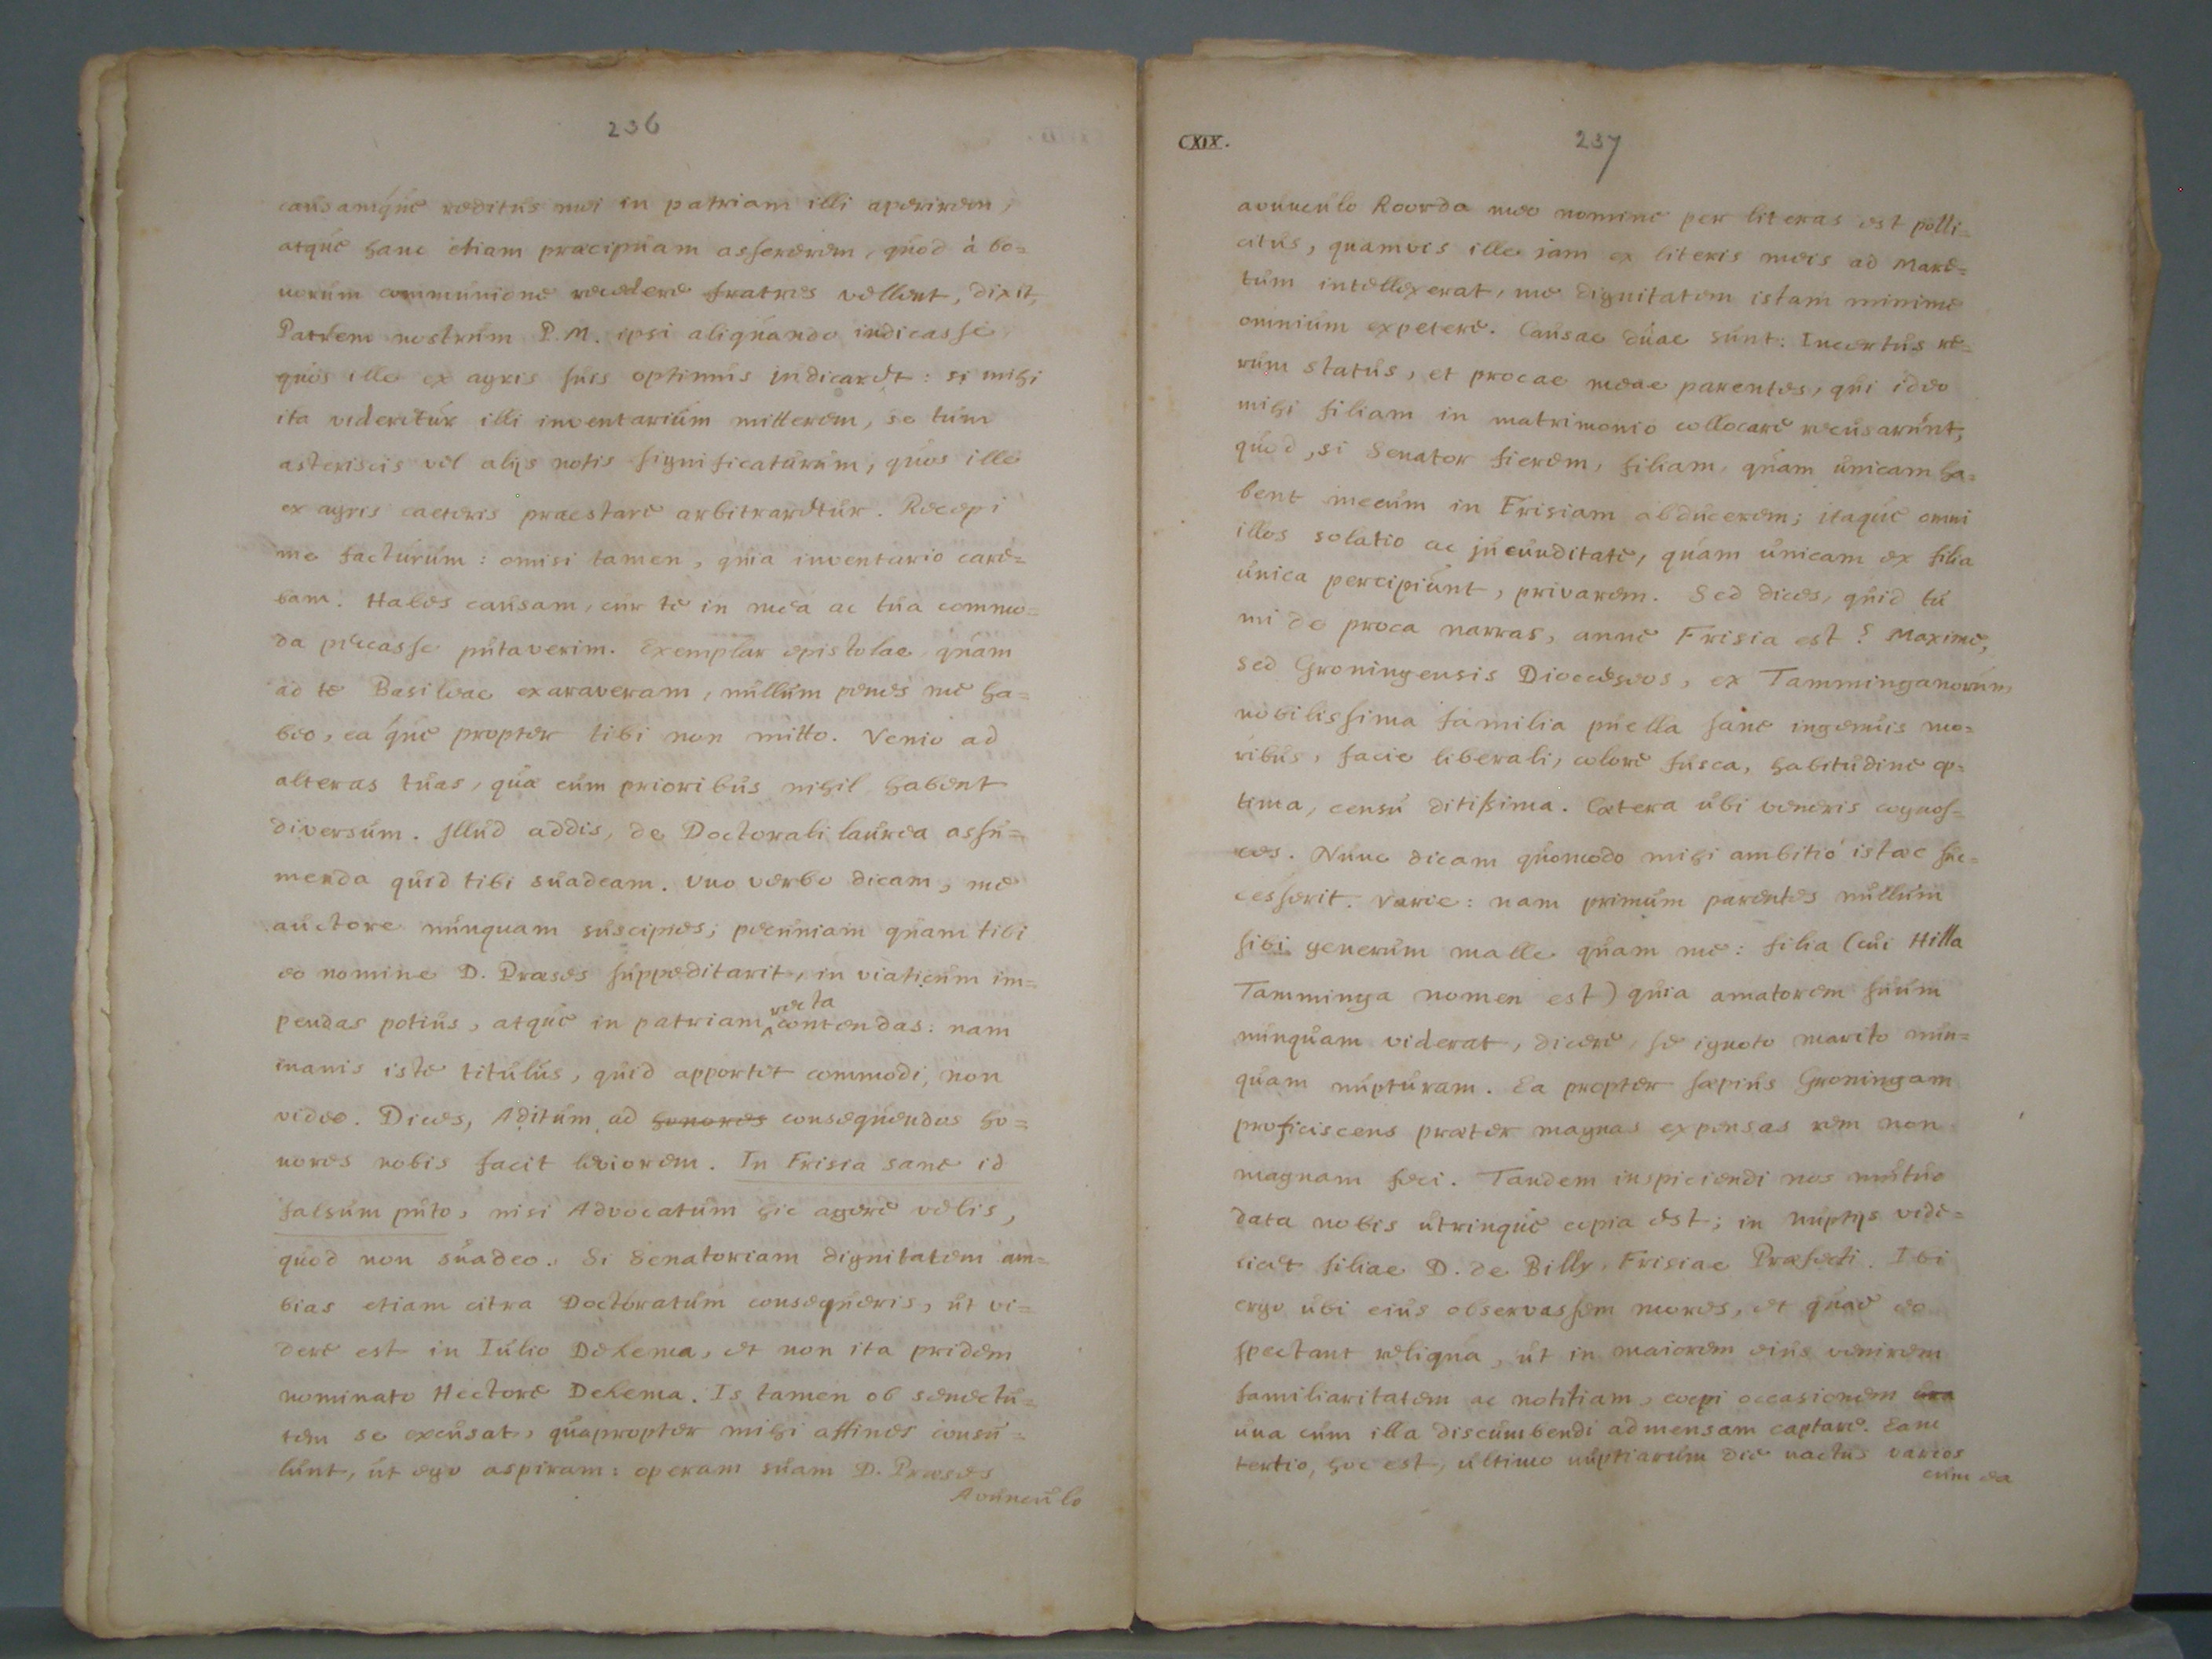 236
causamque reditus mei in patriam illi aperirem,
atque hanc etiam praecipuam assererem, quod à bo=
norum communione recedere fratres vellent, dixit,
Patrem nostrum P.M. ipsi aliquando indicasse
quos ille ex agris suis optimus indicaret: si mihi
ita videretur illi inventarium mitterem, se tum
asteriscis vel alijs notis significaturum, quos ille
ex agris caeteris praestare arbitraretur. Recepi
me facturum: omisi tamen, quia inventario care=
bam. Habes causam, cur te in mea ac tua commo=
da peccasse putaverim. Exemplar epistolae quam
ad te Basileae exaraveram, nullum penes me ha=
beo, ea que propter tibi non mitto. Venio ad
alteras tuas, quae cum prioribus nihil habent
diversum. Illud addis, de Doctorali laurea assu=
menda quid tibi suadeam. Uno verbo dicam, me
auctore nunquam suscipies; pecuniam quam tibi
eo nomine D. Praeses suppeditarit, in viaticum im=
pendas potius, atque in patriam recta contendas: nam
inanis iste titulus, quid apportet commodi, non
video. Dices, Aditum ad honores consequendos ho=
nores nobis facit leviorem. In Frisia sane id
falsum puto, nisi Advocatum hic agere velis,
quod non suadeo. Si Senatoriam dignitatem am=
bias etiam citra Doctoratum consequeris, ut vi=
dere est in Iulio Dekema, et non ita pridem
nominato Hectore Dekema. Is tamen ob senectu=
tem se excusat, quapropter mihi affines consu=
lunt, ut ego aspiram: operam suam D. Praeses
Avunculo
CXIX.
237
avunculo Roorda meo nomine per literas est polli=
citus, quamvis ille iam ex literis meis ad Mare=
tum intellexerat, me dignitatem istam minime
omnium expetere. Causae duae sunt: Incertus re=
rum status, et procae meae parentes, qui ideo
mihi filiam in matrimonio collocare recusarunt,
quod, si Senator fierem, filiam, quam unicam ha=
bent mecum in Frisiam abducerem; itaque omni
illos solatio ac jucunditate, quam unicam ex filia
unica percipiunt, privarem. Sed dices, quid tu
mi de proca narras, anne Frisia est? Maxime,
sed Groningensis Dioeceseos, ex Tamminganorum
nobilissima familia puella sane ingenuis mo=
ribus, facie liberali, colore fusca, habitudine op=
tima, censu ditissima. Caetera ubi veneris cognos=
ces. Nunc dicam quomodo mihi ambitio istaec suc=
cesserit. Varie: nam primum parentes nullum
sibi generum malle quam me: filia (cui Hilla
Tamminga nomen est) quia amatorem suum
nunquam viderat, dicere, se ignoto marito nun=
quam nupturam. Ea propter saepius Groningam
proficiscens praeter magnas expensas rem non
magnam feci. Tandem inspiciendi nos mutuo
data nobis utrinque copia est; in nuptijs vide=
licet filiae D. de Billy, Frisiae Praefecti. Ibi
ergo ubi eius observassem mores, et quae eo
spectant reliqua, ut in maiorem eius venirem
familiaritatem ac notitiam, coepi occasionem una
una cum illa discumbendi ad mensam captare. Eam
tertio, hoc est, ultimo nuptiarum die nactus varios
cum ea